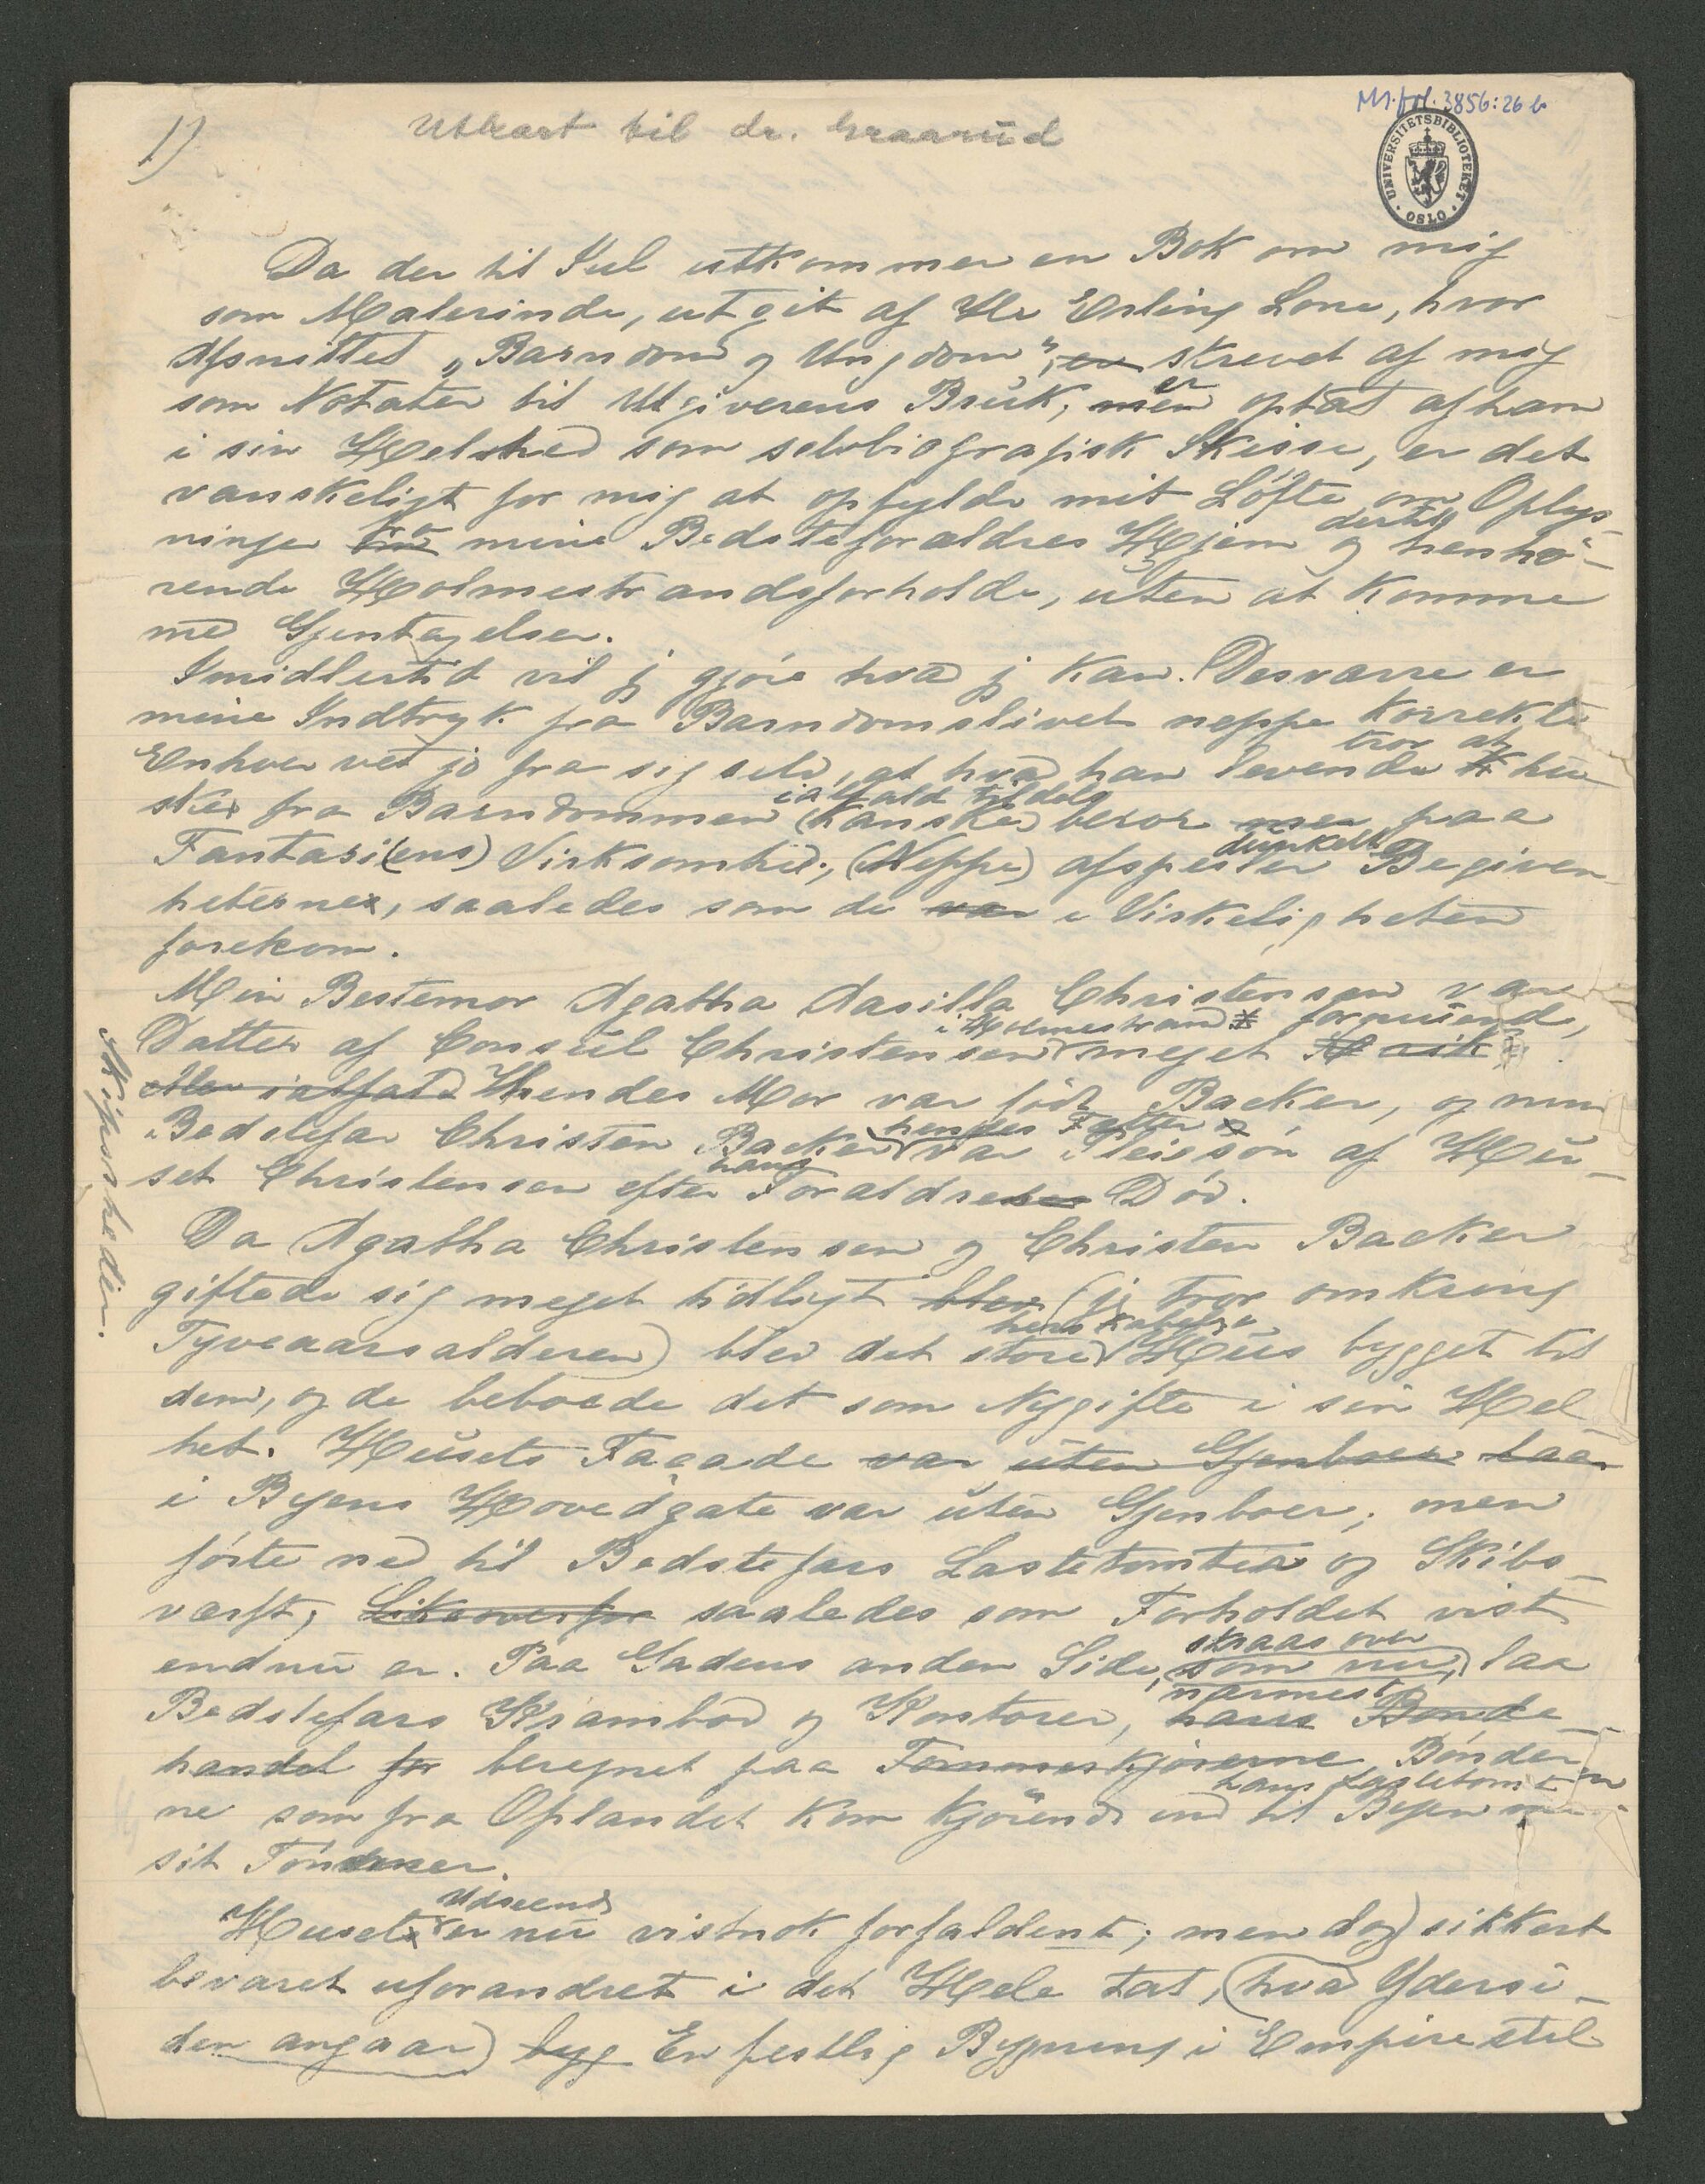 Ms. fol. 3856: 26 b
1)
Utkast til dr. Graarud
UNIVERSITETSBIBLIOTEKET OSLO
Da der til Jul utkommer en Bok om mig
som Malerinde, utgit af Hr Erling Lone, hvor
Afsnittet „Barndom og Ungdom", er skrevet af mig
som Notater til Utgiverens Bruk, men er optat af ham
i sin Helhed som selvbiografisk Skisse, er det
vanskeligt for mig at opfylde mit Løfte om Oplys-
ninger fra mine Bedsteforældres Hjem og dertil henhø-
rende Holmestrandsforholde, uten at komme
med Gjentagelser.
Imidlertid vil jg gjøre hvad jg kan. Desværre er
mine Indtryk fra Barndomslivet neppe korrekte
Enhver vet jo fra sig selv, at hvad han levende tror at hu
sker fra Barndommen (kanske) ialfald tildels beror mer paa
Fantasi(ens) Virksomhed, (Neppe) afspeiler dunkelt Begiven
heterne, saaledes som de var i Virkeligheten
forekom.
Min Bestemor Agatha Aasilla Christensen var
Datter af Consul Christensen i Holmestrand meget formuend, rik
eller ialfald Hendes Mor var født Backer, og min
Bedstefar Christen Backer hendes Fætter var Pleiesøn af Hu-
set Christensen efter hans Forældres Død.
Da Agatha Christensen og Christen Backer
giftede sig meget tidligt blev (jg tror omkring
Tyveaarsalderen) blev det store herskabelige Hus bygget til
dem, og de beboede det som Nygifte i sin Hel
het. Husets Facade var uten Gjenboer laa
i Byens Hovedgate var uten Gjenboer, men
førte ned til Bedstefars Lastetomter og Skibs-
værft, Likeoverfor saaledes som Forholdet vist
endnu er. Paa Gadens anden Side, skraas over som nu, laa
Bedstefars Krambod og Kontorer, nærmest hans Bonde-
handel for beregnet paa Tømmerkjørerne Bønder
ne som fra Oplandet kom kjørende ind til hans Lastetomter Byen med
sit Tømmer.
Husets Udseende er nu vistnok forfaldent; men dog) sikkert
bevaret uforandret i det Hele tat, (hvad Ydersi-
den angaar) byg En festlig Bygning i Empire stil